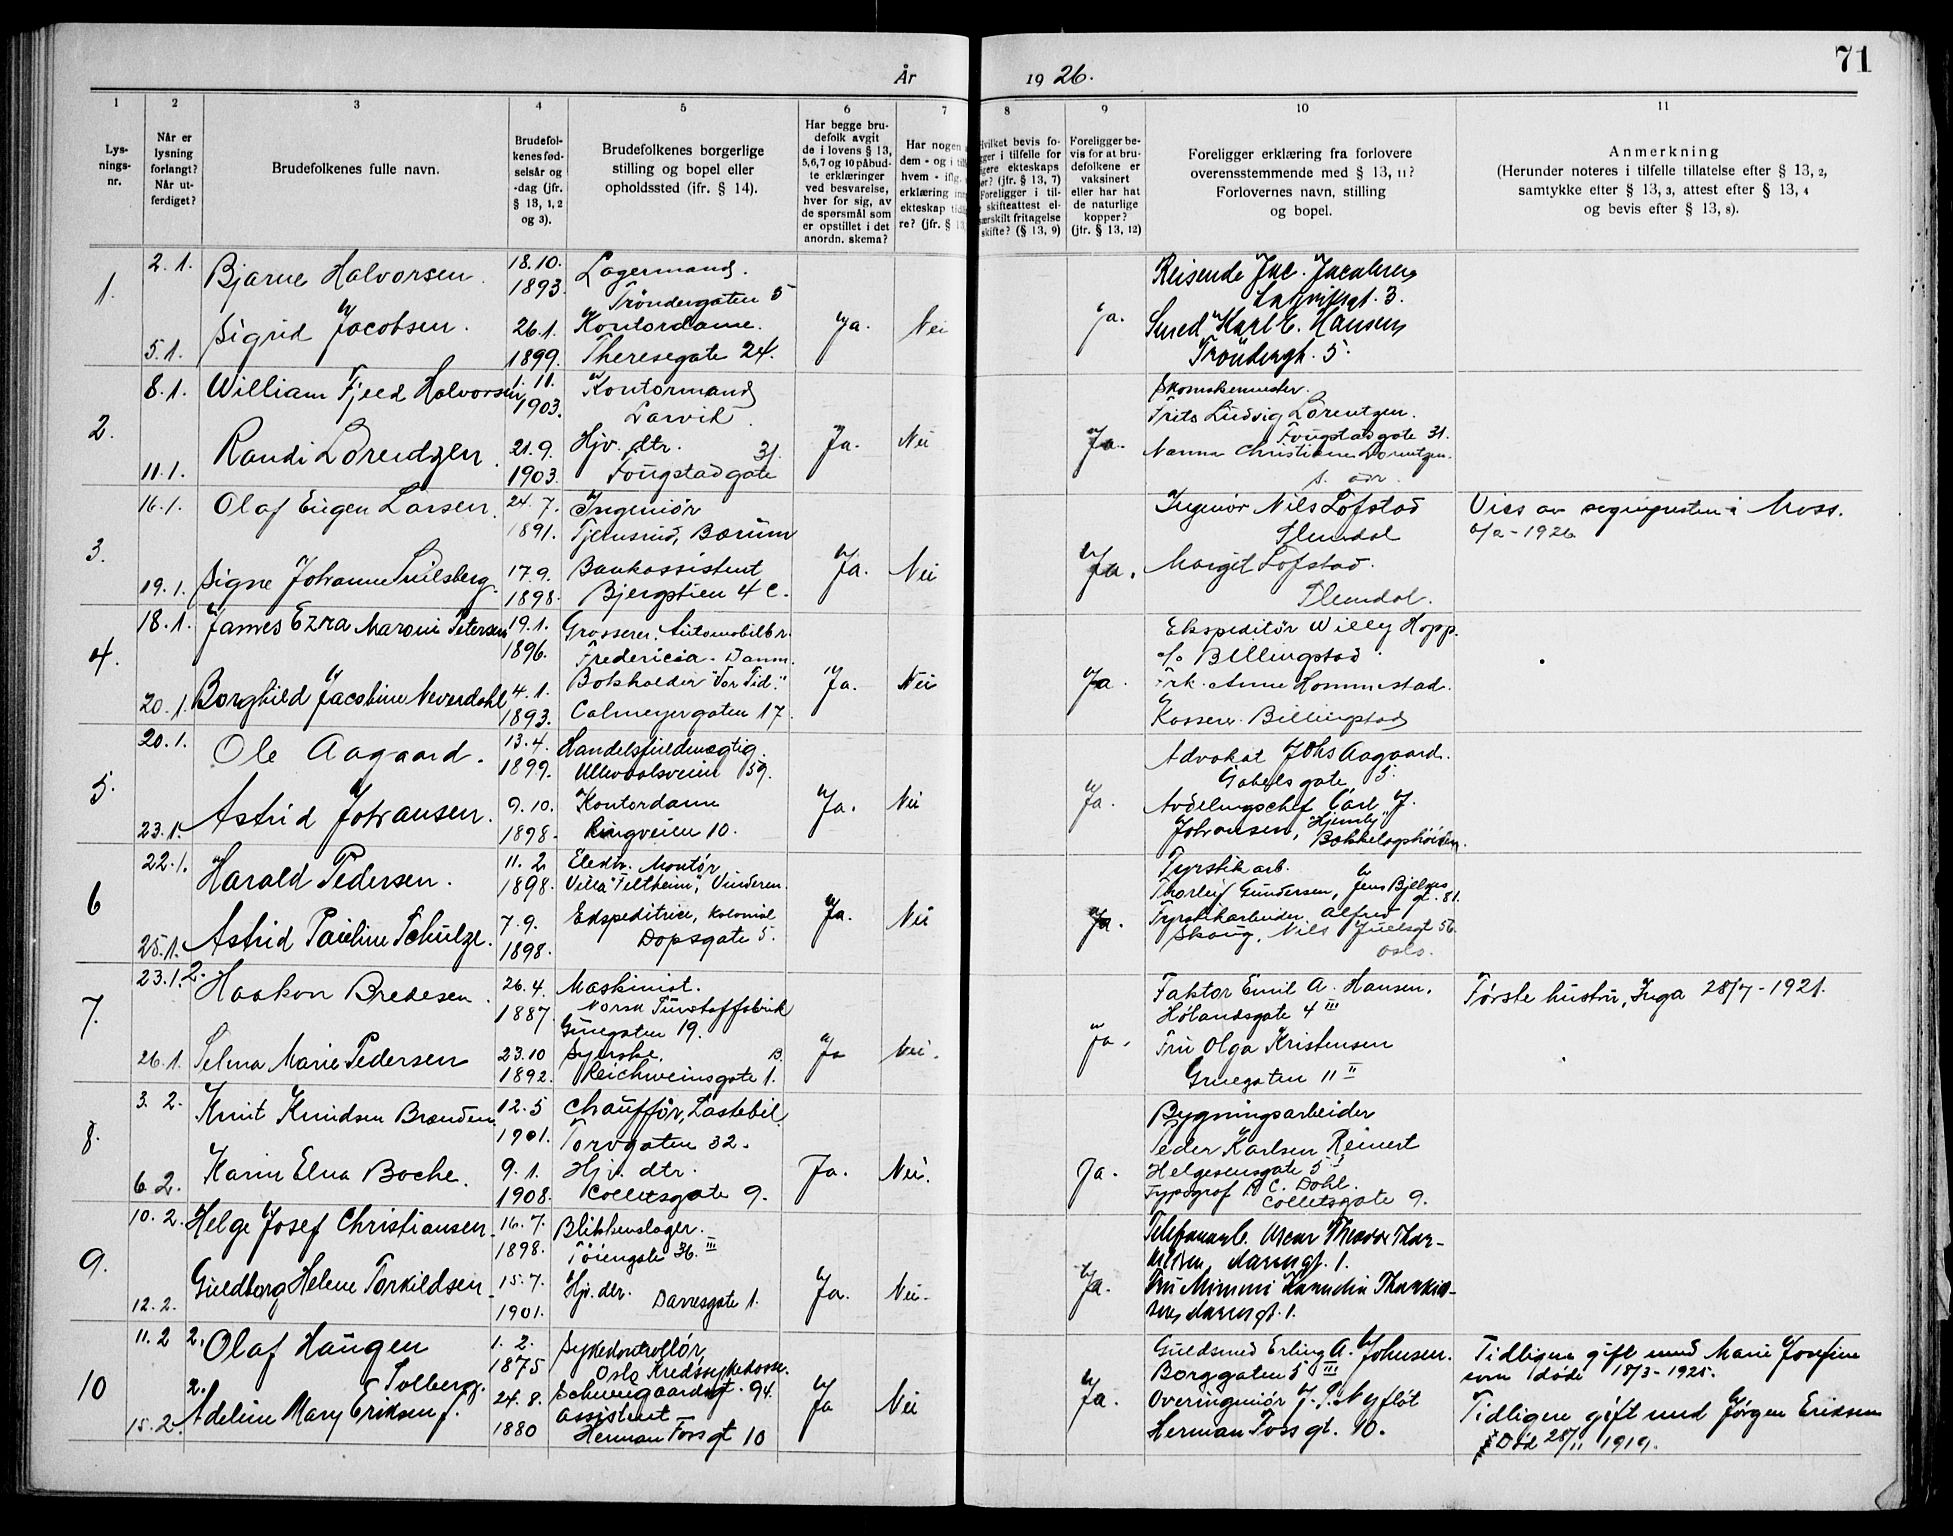 År 1926.
71
1 2 3 4 5 6 7 8 9 10 11
Lys-
nings-
nr.
Når er
lysning
forlangt?
Når ut-
ferdiget?
Brudefolkenes fulle navn.
Brudefol-
kenes fød-
selsår og
-dag (jfr.
§ 13, 1, 2
og 3).
Brudefolkenes borgerlige
stilling og bopel eller
opholdssted (ifr. § 14).
Har begge bru-
defolk avgit
de i lovens § 13,
5,6,7 og 10 påbud-
te erklæringer
ved besvarelse,
hver for sig, av
de spørsmål som
er opstillet i det
anordn. skema?
Har nogen
dem - og i
hvem - iflg.
erklæring
ekteskap
re? (jfr. §
Hvilket bevis fo-
i tilfelle for
ekteskaps
(jfr. § 13, 7)
Foreligger i til-
skifteattest el-
særskilt fritagelse
skifte? (§ 13, 9)
Foreligger be-
vis for at bru-
defolkene er
vaksinert
eller har hat
de naturlige
kopper?
(jfr. § 13, 12)
Foreligger erklæring fra forlovere
overensstemmende med § 13, 11?
Forlovernes navn, stilling
og bopel.
Anmerkning
(Herunder noteres i tilfelle tillatelse efter § 13, 2,
samtykke efter § 13, 3, attest efter § 13, 4
og bevis efter § 13, 8).
1.
2.1. Bjarne Halvorsen. 18.10. 1893. Lagermand.
Trøndergaten 5
5.1. Sigrid Jacobsen. 26.1. 1899. Kontordame.
Theresegate 24.
Ja. Nei Ja.
Reisende Jac. Jacobsen
gt. 3.
Smed Karl E. Hansen
Trøndergt. 5.
2.
8.1. William Fjeld Halvorsen 1.11. 1903. Kontormand
Larvik
11.1. Randi Lorentzen. 21.9. 1903. Hjv. dtr.
Fougstadgate 31.
Ja. Nei Ja.
Skomakermester.
Frits Ludvig Lorentzen.
Fougstadgate 31.
Nanna Christiane Lorentzen.
s. adr.
3.
16.1. Olaf Eugen Larsen. 24.7. 1891. Ingeniør
Tjernsrud, Bærum
19.1. Signe Johanne 17.9. 1898. Bankassistent
Bjergstien 4 c.
Ja. Nei Ja.
Ingeniør Nils Lofstad
Slemdal
Margit Lofstad.
Slemdal.
Vies av sognepresten i Moss.
6/2-1926
4.
18.1. James Ezra Maroni Petersen 19.1. 1896. Grosserer. Automobilbr.
Fredericia. Danm.
20.1. Borghild Jacobine Neverdahl 4.1. 1893. Bokholder "Vor Tid".
Calmeyergaten 17.
Ja. Nei Ja.
Ekspeditør Willy Hopp.
c/o Billingstad.
Frk. Anne Hommestad.
Kasserer. Billingstad
5.
20.1. Ole Aagaard. 13.4. 1899. Handelsfuldmægtig.
Ullevaalsveien 59.
23.1. Astrid Johansen. 9.10. 1898. Kontordame
Ringveien 10.
Ja. Nei Ja.
Advokat Johs Aagaard.
Gabels gate 5.
Avdelingschef Carl J.
Johansen, "Hjemly"
Bækkelagshøiden.
6
22.1. Harald Pedersen. 11.2 1898. Elektr. Montør
Villa "Tiltheim", Vinderen.
25.1. Astrid Pauline Schulze. 7.9. 1898. Ekspeditrice, kolonial
Dopsgate 5.
Ja. Nei Ja.
Fyrstik arb.
Thorleif Gundersen, Jens Bjelkes
gt. 81.
Fyrstikarbeider Alfred
Skaug, Nils Juelsgt 56.
Oslo.
7.
23.1. 2. Haakon Bredesen. 26.4. 1887. Maskinist.
Norsk Tunstoffabrik
Gruegaten 19.
26.1. Selma Marie Pedersen 23.10 1892. Syerske.
Reichweinsgate 1. B.
Ja Nei. Ja.
Faktor Emil A. Hansen,
Hølandsgate 4 III
Fru Olga Kristensen
Gruegaten 11 II
Første hustru, Inga 28/7-1921.
8.
3.2. Knut Knudsen Brænden. 12.5 1901. Chauffør, Lastebil
Torvgaten 32.
6 2. Karin Elna Boche. 9.1. 1908. Hjv. dtr.
Colletsgate 9.
Ja. Nei. Ja.
Bygningsarbeider
Peder Karlsen Reinert
Helgesensgate 5 I
Typograf C. Dahl.
Colletsgate 9.
9.
10.2. Helge Josef Christiansen. 16.7. 1898. Blikkenslager.
Tøiengate 36. III
12.2. Guldborg Helene Torkildsen 15.7. 1901. Hjv. dtr.
Darresgate 1.
Ja. Nei. Ja.
Telefonarb. Oscar Theodor Thor-
kildsen, Darresgt. 1.
Fru Mimmi Thorkild-
sen, Darresgt. 1.
10
11.2 2. Olaf Haugen 1.2. 1875 Sykekontrollør,
Oslo Kredssykekasse.
Schweigaardsgt. 94.
15.2. 2. Adeline Mary Eriksen f. Solberg. 24.8. 1880 Assistent
Herman Foss gt 10
Ja Nei Ja.
Guldsmed Erling A. Johnsen.
Borggaten 5 III
Overingeniør J. S. Nyfløt
Herman Foss gt. 10.
Tidligere gift med Marie Josefine
som døde 18/3-1925.
Tidligere gift med Jørgen Eriksen
Død 28/11 1919.